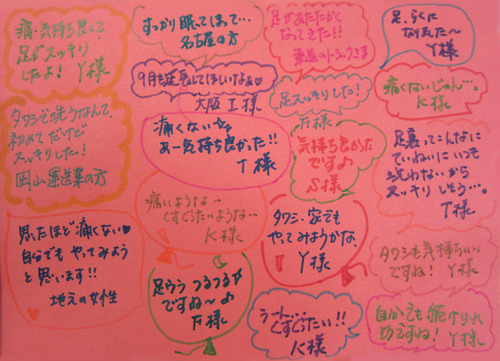 痛・気持ち良くて
足がスッキリ
したよ! Y様
すっかり眠ってしまって…
名古屋の方
足があたたかく
なってきた!!
東区のトラックさま
足、らくに
なりました〜
Y様
9月も延長してほしいなぁ
大阪 I様
足スッキリした!
F様
痛くないじゃん…。
K様
タワシで洗うなんて、
初めてだけど
スッキリした!
岡山運送業の方
痛くない
あー気持ち良かった!!
T様
気持ち良かった
です♪
S様
足裏ってこんなに
ていねいにいつも
洗わないから
スッキリしそう…。
T様
思ったほど痛くない
自分でもやってみよう
と思います!!
地元の女性
痛いような…
くすぐったいような…
K様
タワシ、家でも
やってみようかな。
Y様
タワシも気持ちいい
ですね! Y様
足ウラ つるつる
ですね〜♪
F様
う〜ト…
くすぐったい!!
K様
自分でも続けられ
そうですね! Y様